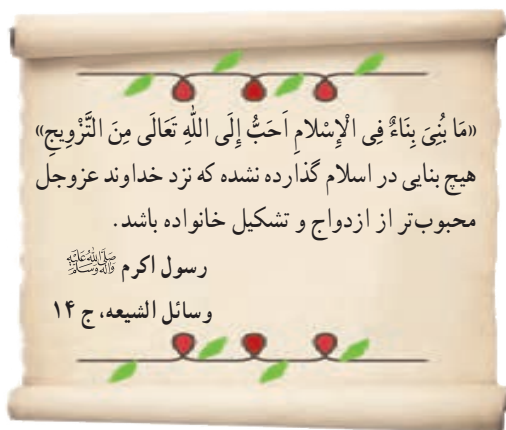 «مَا بُنِیَ بِنَاءٌ فِی الْإِسْلامِ اَحَبُّ إِلَی اللّٰهِ تَعَالَی مِنَ التَّزْوِیجِ»
هیچ بنایی در اسلام گذارده نشده که نزد خداوند عزوجل
محبوب‌تر از ازدواج و تشکیل خانواده باشد.
رسول اکرم ﷺ
وسائل الشیعه، ج ۱۴